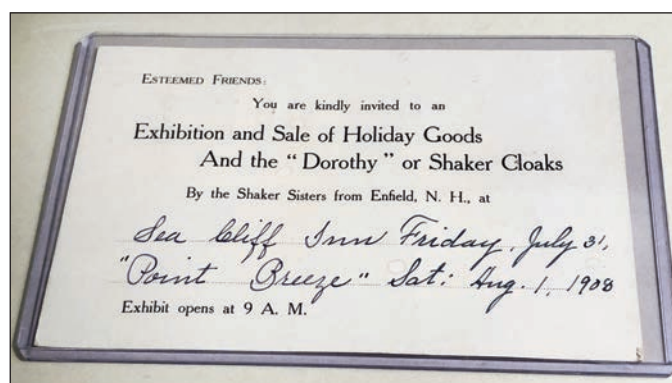 ESTEEMED FRIENDS:
You are kindly invited to an
Exhibition and Sale of Holiday Goods
And the "Dorothy" or Shaker Cloaks
By the Shaker Sisters from Enfield, N. H., at
Sea Cliff Inn Friday, July 31,
"Point Breeze" Sat: Aug. 1, 1908
Exhibit opens at 9 A. M.